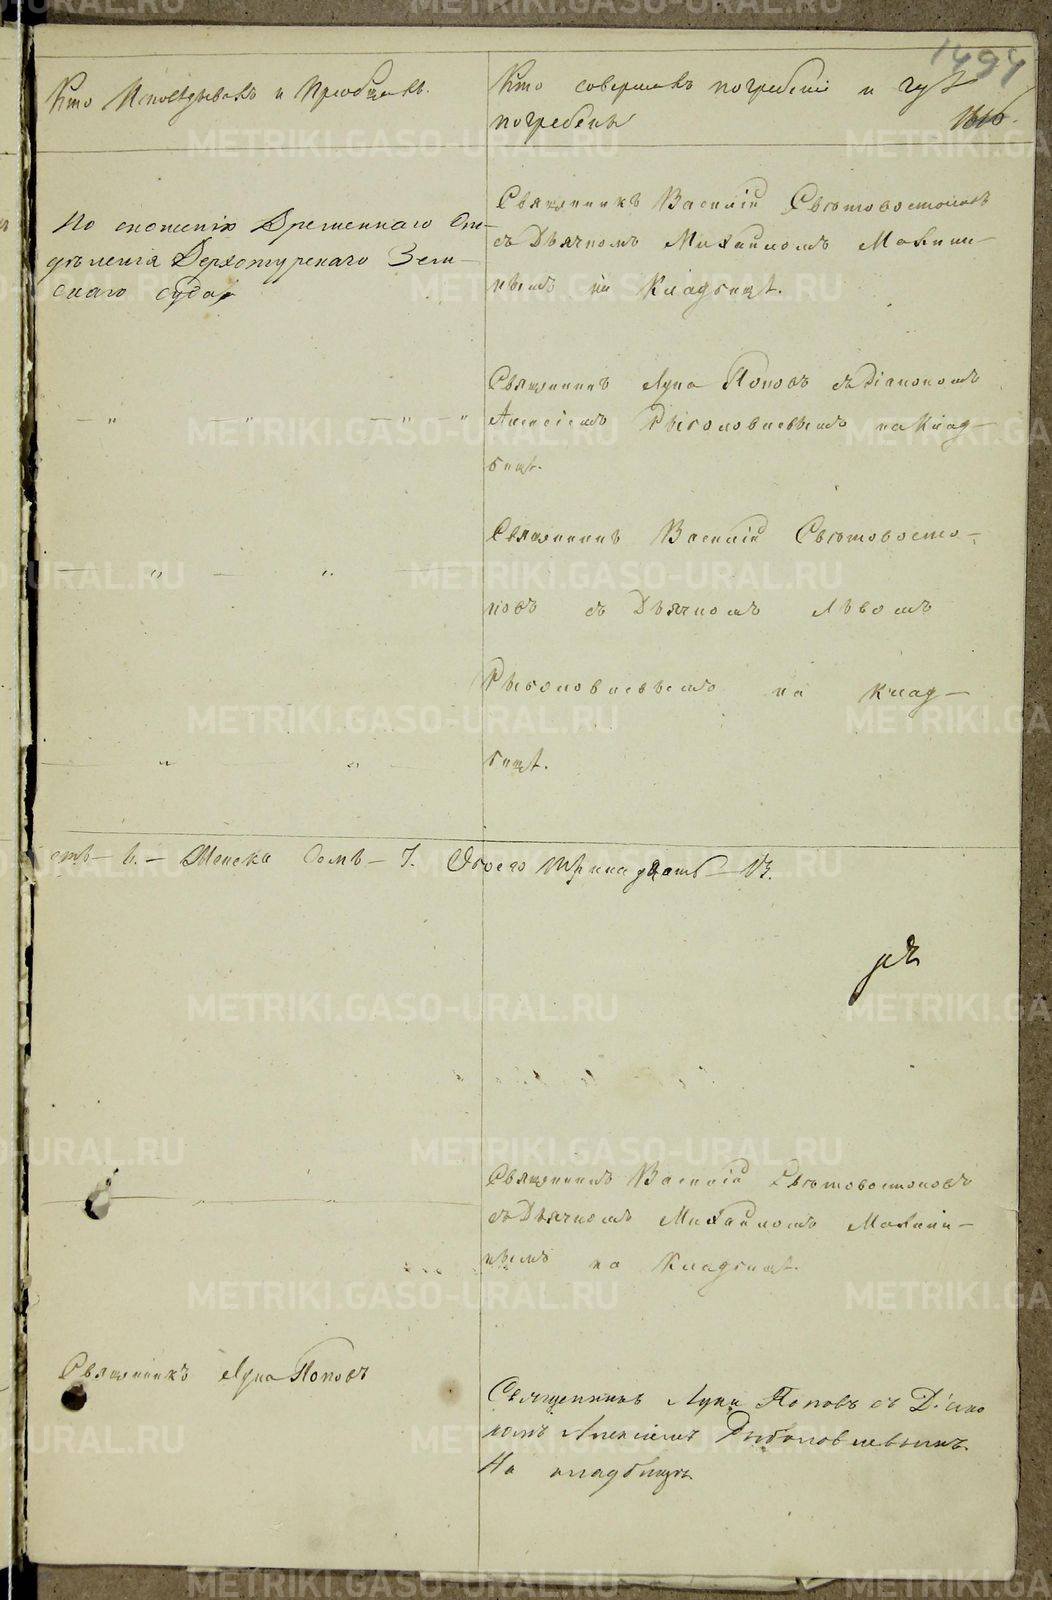 1494
Кто Исповѣдывалъ и Пріобщалъ.
Кто совершалъ погребеніе и гдѣ
погребены
1616.
По сношенію Временнаго От-
дѣленія Верхотурскаго Зем-
скаго суда
Священникъ Василій Свѣтовостоковъ
съ Дьячкомъ Михаиломъ
на Кладбищѣ.
Священникъ Лука Поповъ съ Діакономъ
Алексіемъ Рыболовлевымъ на Клад-
бищѣ.
Священникъ Василій Свѣтовосто-
ковъ съ Дьячкомъ Львомъ
Рыболовлевымъ на клад-
бищѣ.
6. – Женска Семь – 7. Обоего тринадцать – 13.
Священникъ Василій Свѣтовостоковъ
съ Дьячкомъ Михаиломъ
на Кладбищѣ.
Священникъ Лука Поповъ
Священникъ Лука Поповъ съ Діако
номъ Алексіемъ Рыболовлевымъ
На кладбищѣ
METRIKI.GASO-URAL.RU